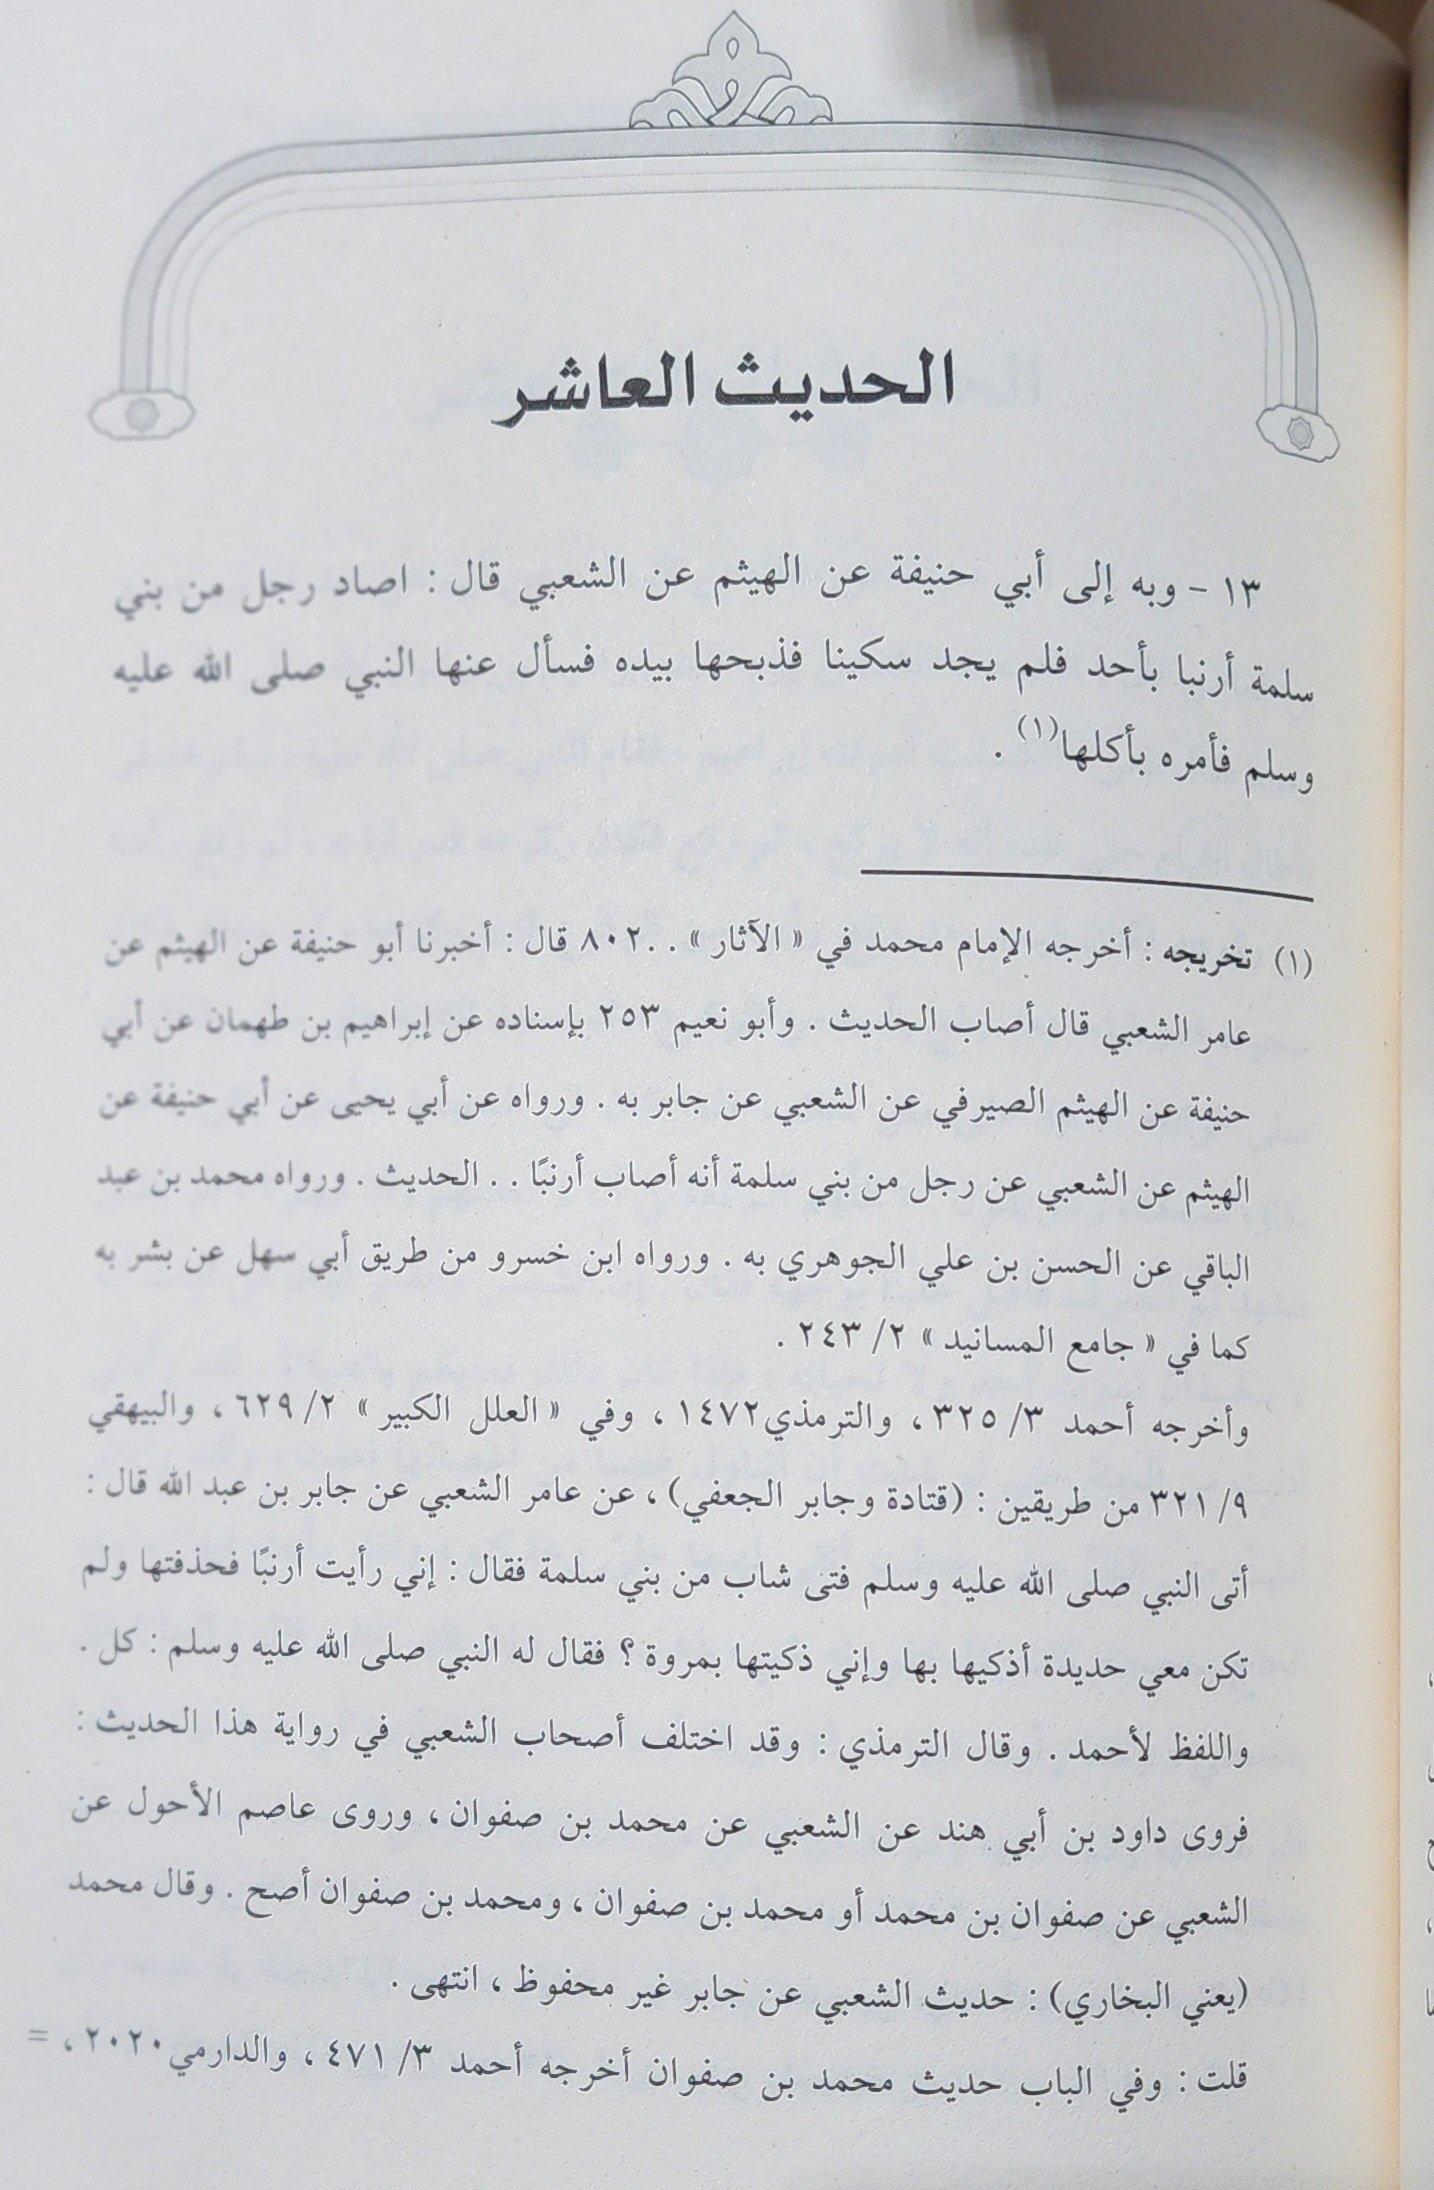 الحديث العاشر
١٣ - وبه إلى أبي حنيفة عن الهيثم عن الشعبي قال : اصاد رجل من بني
سلمة أرنبا بأحد فلم يجد سكينا فذبحها بيده فسأل عنها النبي صلى الله عليه
وسلم فأمره بأكلها(١) .
(١) تخريجه : أخرجه الإمام محمد في « الآثار » . .٨٠٢ قال : أخبرنا أبو حنيفة عن الهيثم عن
عامر الشعبي قال أصاب الحديث . وأبو نعيم ٢٥٣ بإسناده عن إبراهيم بن طهمان عن أبي
حنيفة عن الهيثم الصيرفي عن الشعبي عن جابر به . ورواه عن أبي يحيى عن أبي حنيفة عن
الهيثم عن الشعبي عن رجل من بني سلمة أنه أصاب أرنبًا . . الحديث . ورواه محمد بن عبد
الباقي عن الحسن بن علي الجوهري به . ورواه ابن خسرو من طريق أبي سهل عن بشر به
كما في « جامع المسانيد » ٢/ ٢٤٣ .
وأخرجه أحمد ٣/ ٣٢٥ ، والترمذي١٤٧٢ ، وفي « العلل الكبير » ٢/ ٦٢٩ ، والبيهقي
٩/ ٣٢١ من طريقين : (قتادة وجابر الجعفي) ، عن عامر الشعبي عن جابر بن عبد الله قال :
أتى النبي صلى الله عليه وسلم فتى شاب من بني سلمة فقال : إني رأيت أرنبًا فحذفتها ولم
تكن معي حديدة أذكيها بها وإني ذكيتها بمروة ؟ فقال له النبي صلى الله عليه وسلم : كل .
واللفظ لأحمد . وقال الترمذي : وقد اختلف أصحاب الشعبي في رواية هذا الحديث :
فروى داود بن أبي هند عن الشعبي عن محمد بن صفوان ، وروى عاصم الأحول عن
الشعبي عن صفوان بن محمد أو محمد بن صفوان ، ومحمد بن صفوان أصح . وقال محمد
(يعني البخاري) : حديث الشعبي عن جابر غير محفوظ ، انتهى .
قلت : وفي الباب حديث محمد بن صفوان أخرجه أحمد ٣/ ٤٧١ ، والدارمي٢٠٢٠ ، =